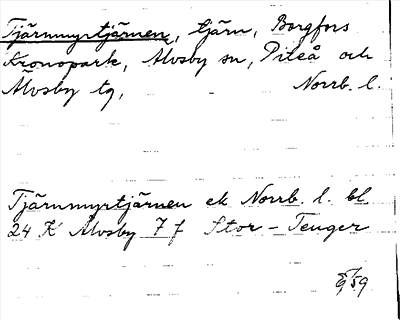 Tjärnmyrtjärnen, tjärn, Borgfors
Kronopark, Älvsby sn, Piteå och
Älvsby tg, Norrb. l.
Tjärnmyrtjärnen ek Norrb. l. bl
24 K Älvsby 7 f Stor-Tenger